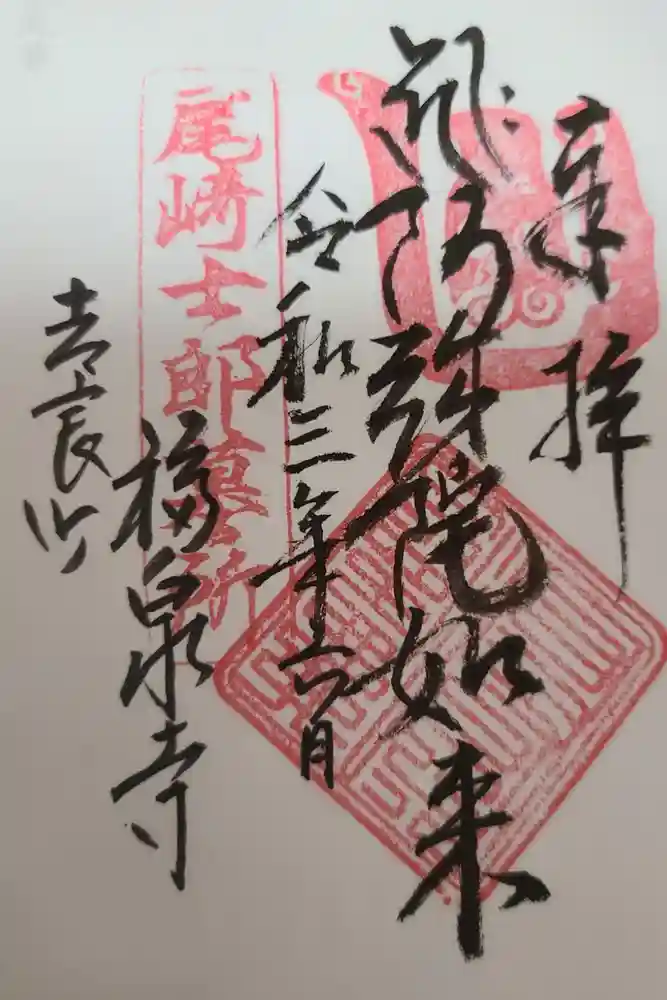 奉拝
阿弥陀如来
令和三年六月
尾崎士郎墓所
福泉寺
吉良